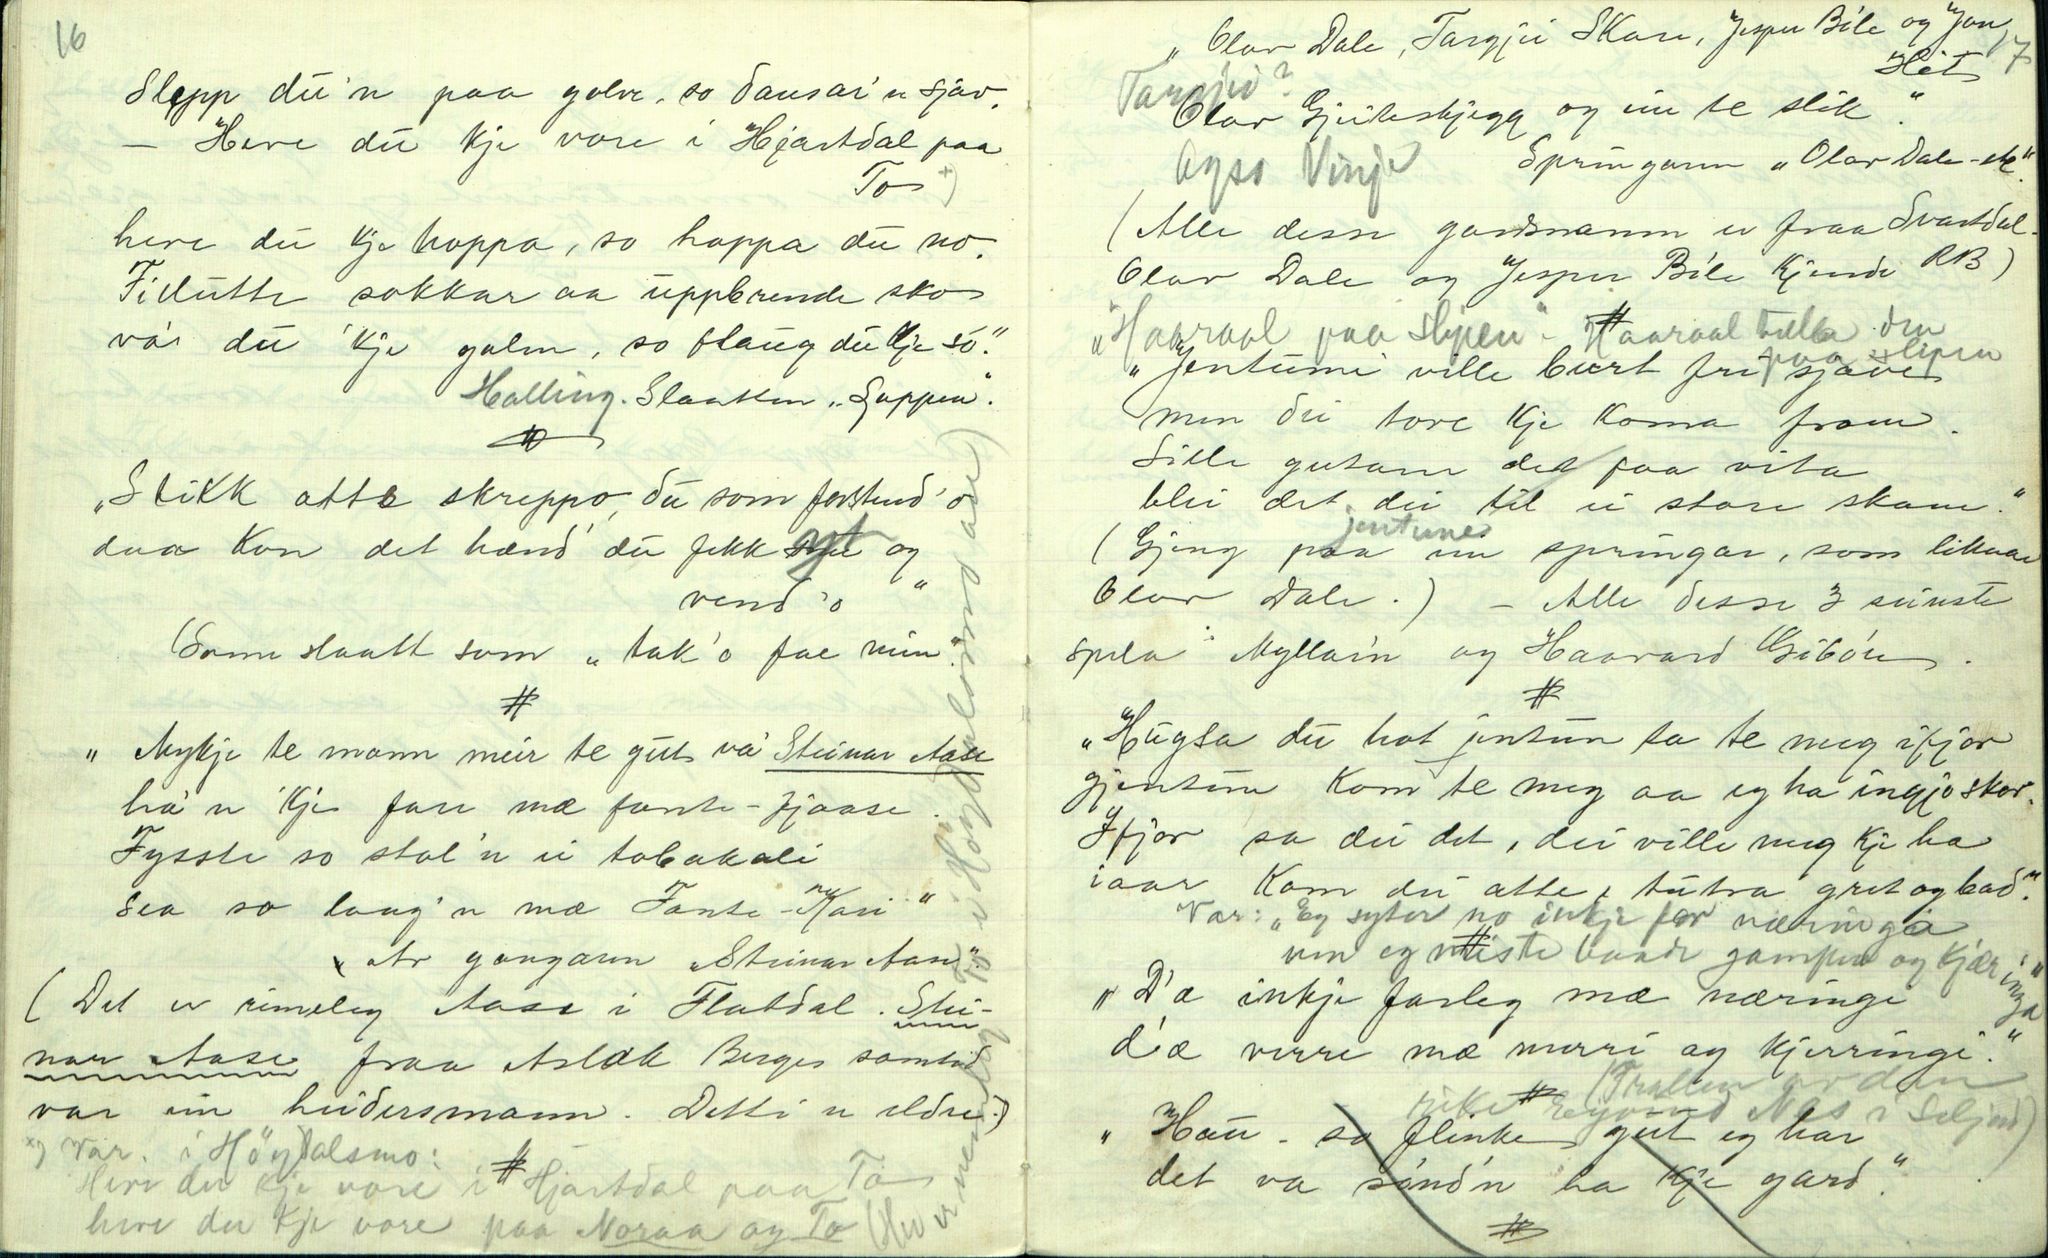 16
Slepp du'n paa golve, so dansar'n sjav.
— Heve du kje vore i Hjartdal paa
To x)
heve du kje hoppa, so hoppa du no.
Fillutte sokkar aa uppbrende sko
vá du 'kje galen, so flaug du kje so."
Halling. Slaatten „Guppen".
#
„Stikk atte skreppo, du som forstend'o
daa kan det hænd' du fekk gt og
vend'o"
(Same slaatt som „tak'o fae min".
#
„Mykje te mann meir te gut va' Steinar Aase
há'n 'kje fare mæ fante-fjaase.
Fysste so stal'n ei tobakali
sea so laag'n mæ Fante-Kari"
Av gangaren „Steinar Aase".
(Det er rimeleg Aase i Flatdal. Stei-
nar Aase fraa Aslak Berges samtid
var ein heidersmann. Dette er eldre.)
x) Var. i Höydalsmo:
Heve du kje vore i Hjartdal paa To
heve du kje vore paa Noraa og To
(No er neml. og To i Höydalsmo
17
„Olav Dale, Targjei Skare, Jesper Bíle og Jon
Heit
Targjei?
Olav Gjeiteskjegg og ein te slik".
Ogso Vinje
Springaren „Olav Dale-ste".
(Alle desse gardsnamn er fraa Svartdal.
Olav Dale og Jesper Bíle kjende RB)
„Haavaal paa slipen" - Haavaal trella den
paa slipen
#
„Jentune ville burt fri sjave
men dei tore kje koma fram.
Sille gutane det faa vita
blei det dei til ei store skam."
jentune
(Gjeng paa ein springar, som liknar
Olav Dale.) — Alle desse 3 seinste
spela Myllarín og Haavard Gibøen.
#
„Hugsa du hot jentun sa te meg ifjor
gjentune kom te meg aa eg ha ingjo skor.
Ifjor sa dei det, dei ville meg kje ha
iaar kom dei atte, tutra gret og bad".
Var: „Eg syter no inkje for næringa
#
um eg miste baade gampen og kjæringa"
„D'æ inkje farleg mæ næringe
d'æ verre mæ merri og kjerringi."
#
„Hau - so flinke gut eg har
det va sónd'n ha kje gard".
#